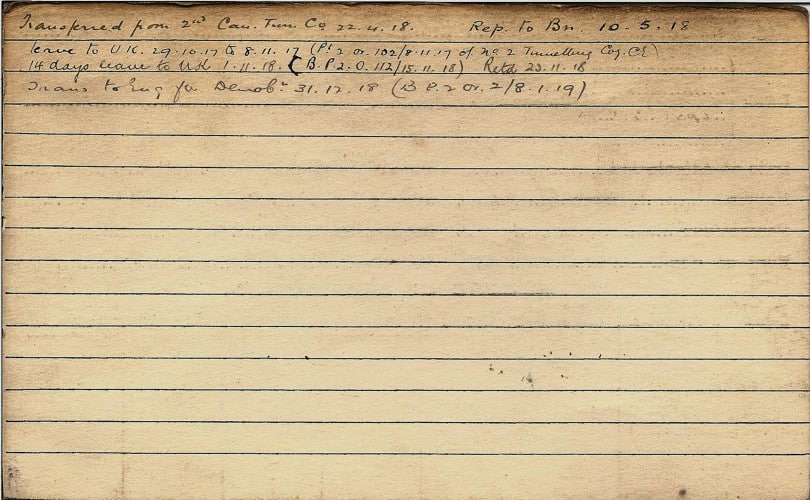 Transferred from 2nd Can. Tun Co 22.4.18. Rep. to Bn. 10.5.18
Leave to U.K. 29.10.17 to 8.11.17 (Pt 2 or. 102/8.11.17 of No 2 Tunnelling Coy. CE)
14 days leave to UK 1.11.18. (B.P.2.O. 112/15.11.18) Retd 23.11.18
Trans to Eng for Demobn 31.12.18 (B.P.2 or. 2/8.1.19)